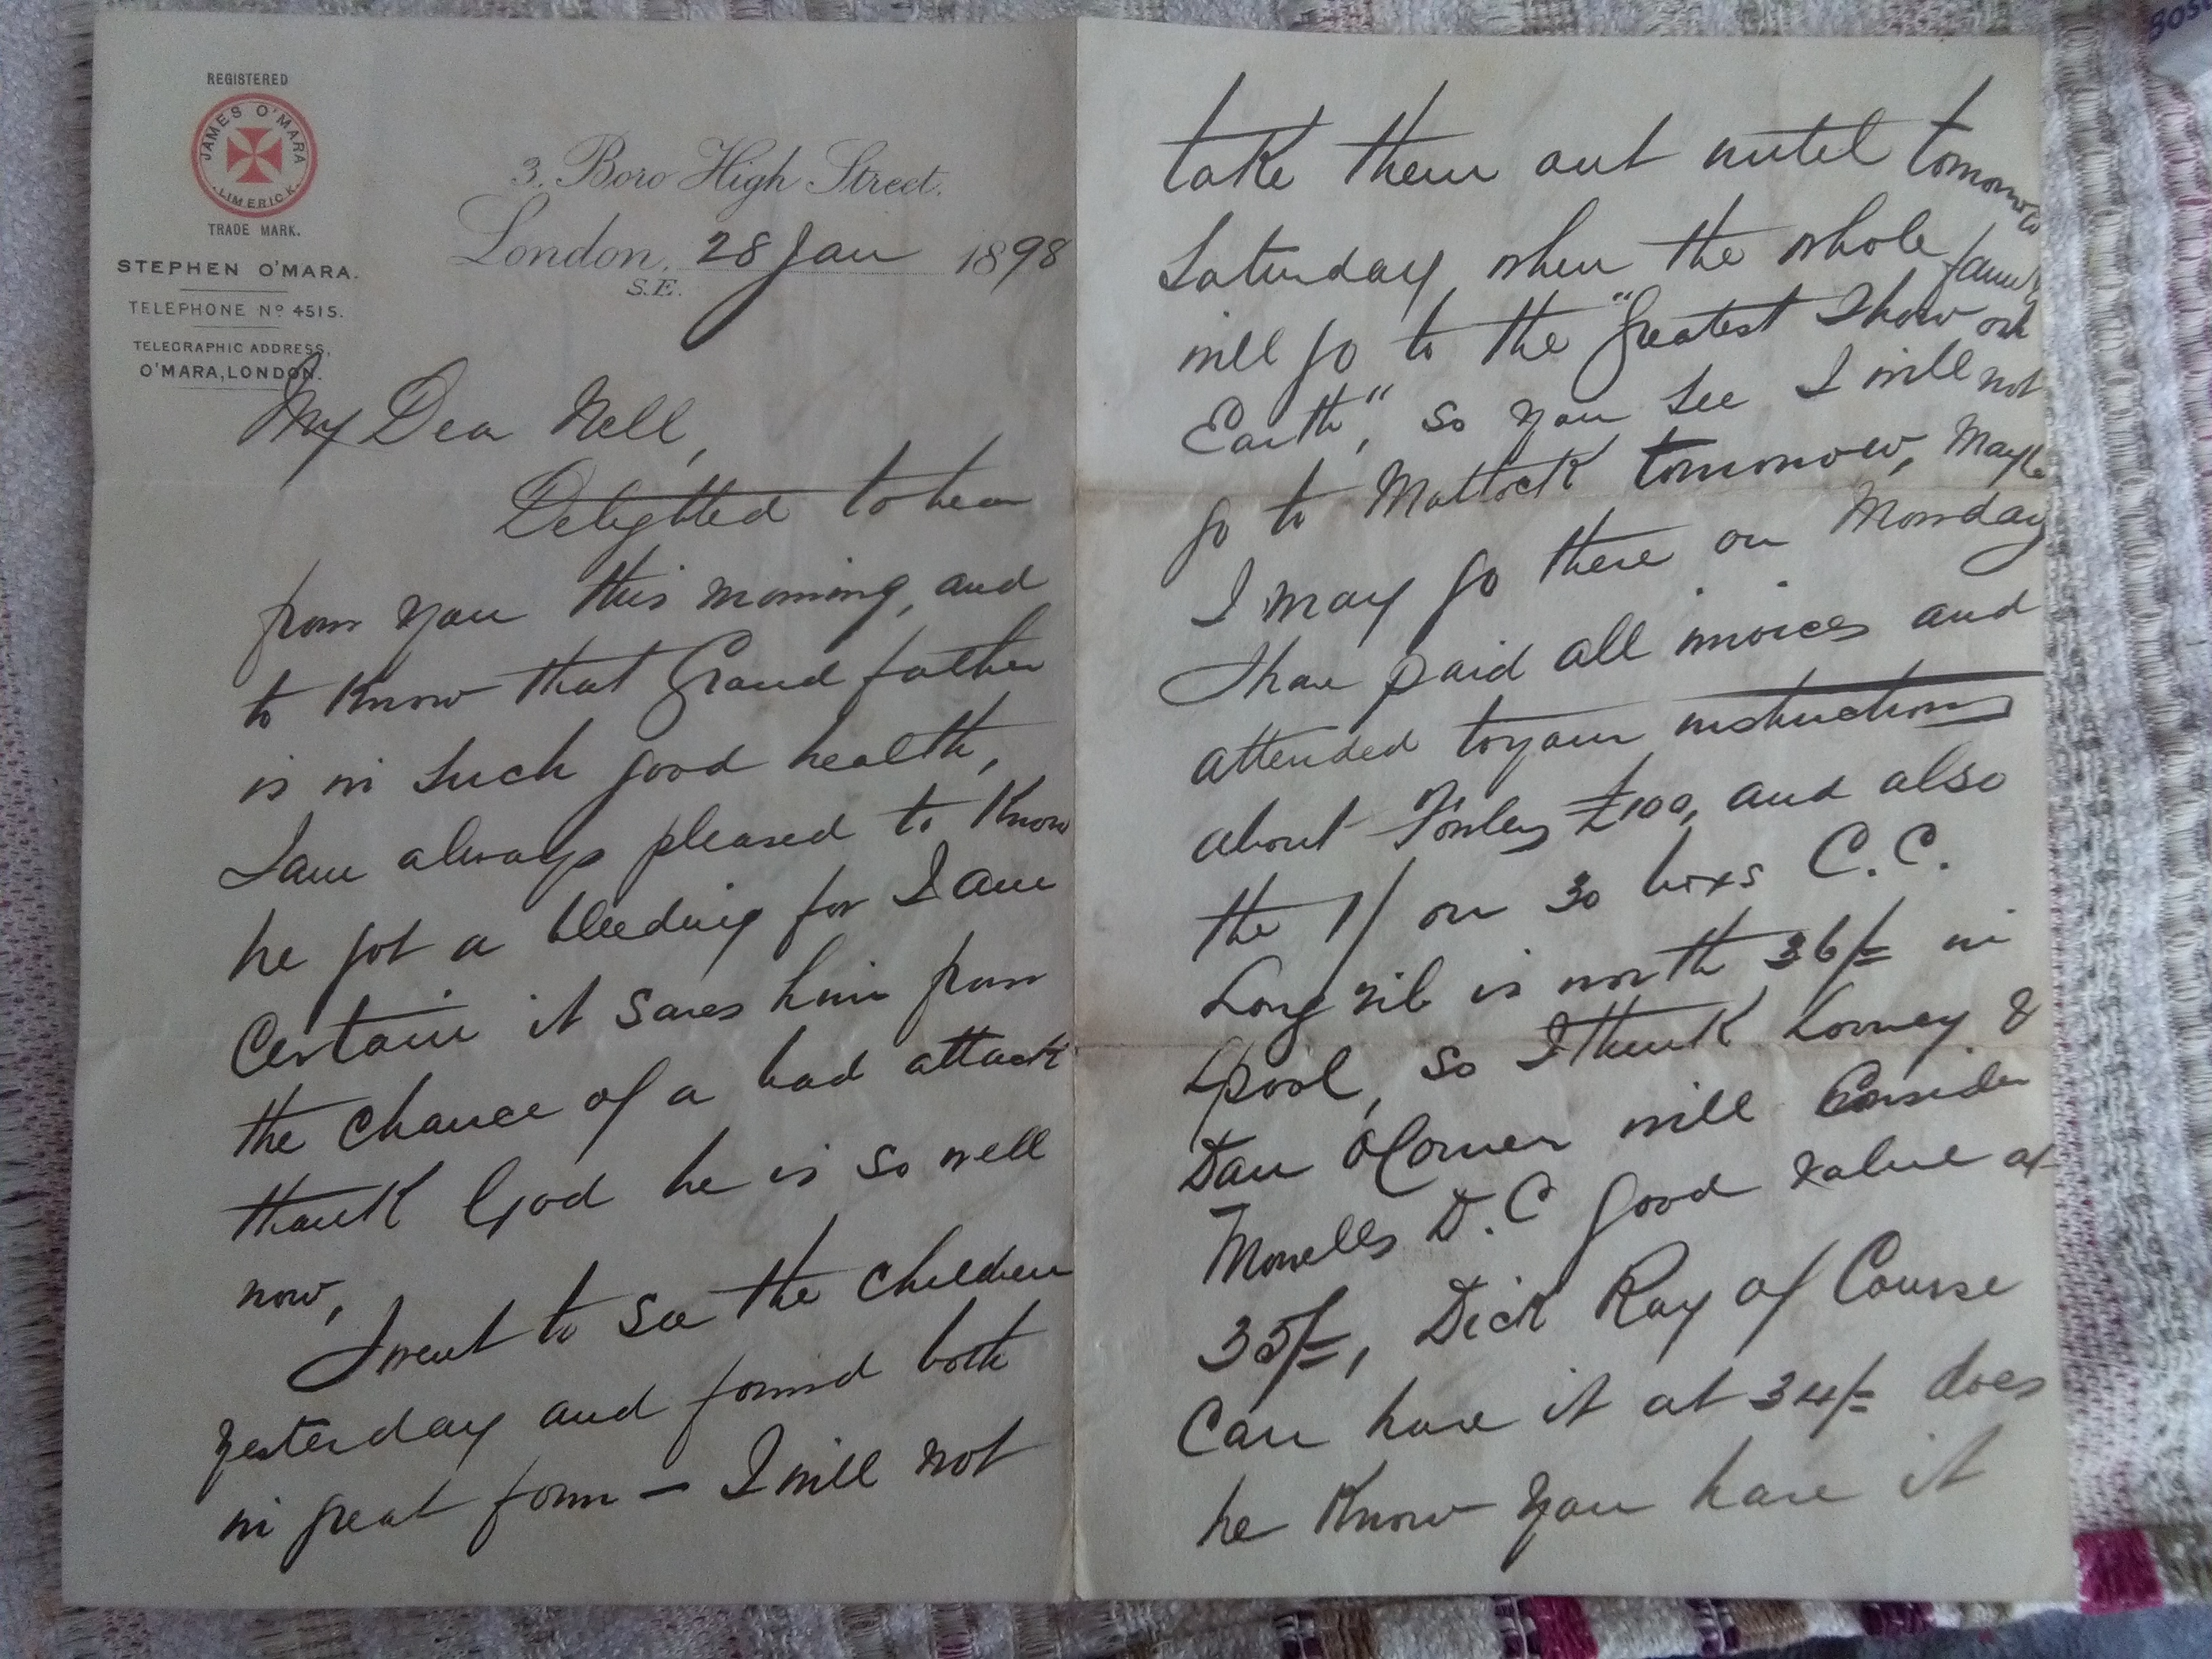 REGISTERED
JAMES O'MARA
LIMERICK.
TRADE MARK.
STEPHEN O'MARA.
TELEPHONE Nº 4515.
TELEGRAPHIC ADDRESS,
O'MARA, LONDON.
3. Boro High Street.
London, 28 Jan 1898
S.E.
My Dear Nell,
Delighted to hear
from you this morning, and
to Know that Grand father
is in such good health,
I am always pleased to Know
he got a bleeding for I am
Certain it saves him from
the chance of a bad attack
thank God he is so well
now,
I went to see the children
yesterday and found both
in great form – I will not
take them out until tomorrow
Saturday when the whole family
will go to the "Greatest Show on
Earth", so you see I will not
go to Mattock tomorrow, Maybe
I may go there on Monday
I have paid all invoices and
attended to your instructions
about £100, and also
the 1/ on 30 boxs C.C.
Long rib is worth 36/= in
Lpool, so I think &
Dan will Consider
D.C good value at
35/=, Dick Ray of Course
Can have it at 34/= does
he Know you have it